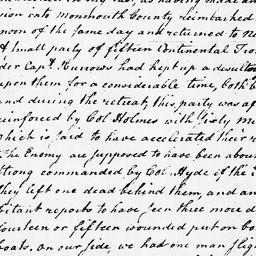 sion into Monmouth County reimbarked
noon of the same day and returned to Ne
A small party of fifteen Continental Troo
der Capt. Burrows had kept up a desulto
upon them for a considerable time, both b
and during the retreat, this party was af
reinforced by Col Holmes with sixty M
which is said to have accelerated their r
The Enemy are supposed to have been abou
strong commanded by Col. Hyde of the
they left one dead behind them, and an
bitant reports to have seen three more d
fourteen or fifteen wounded put on bo
boats. on our side, we had one man slig